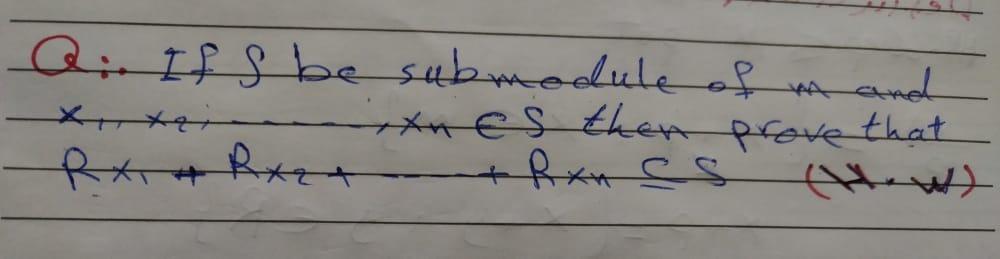 Q:. If S be submodule of m and
x1, x2, -------, xn ∈ S then prove that
Rx1 + Rx2 + ---- + Rxn ⊆ S (H.W)